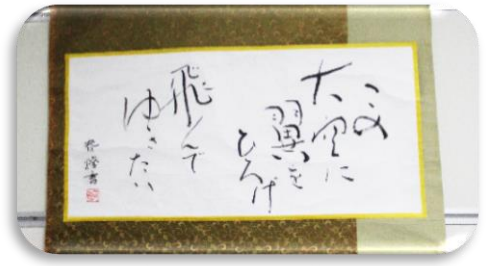 この
大空に
翼を
ひろげ
飛んで
ゆきたい